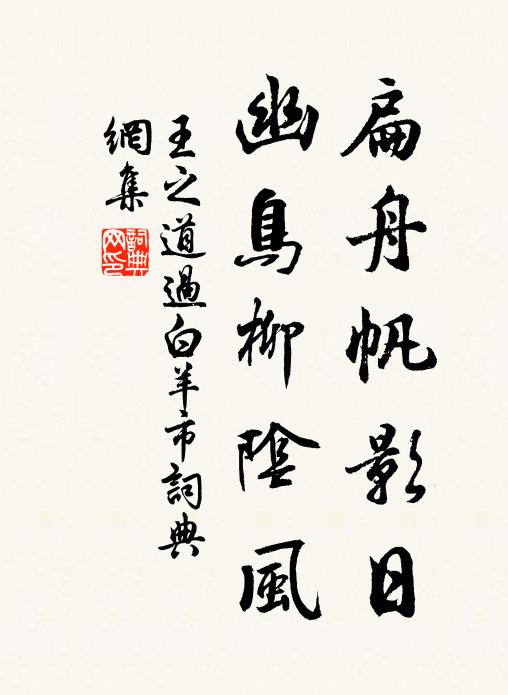 扁舟帆影日
幽鳥柳陰風
王之道過白羊市詞典
網集
詞典
網印